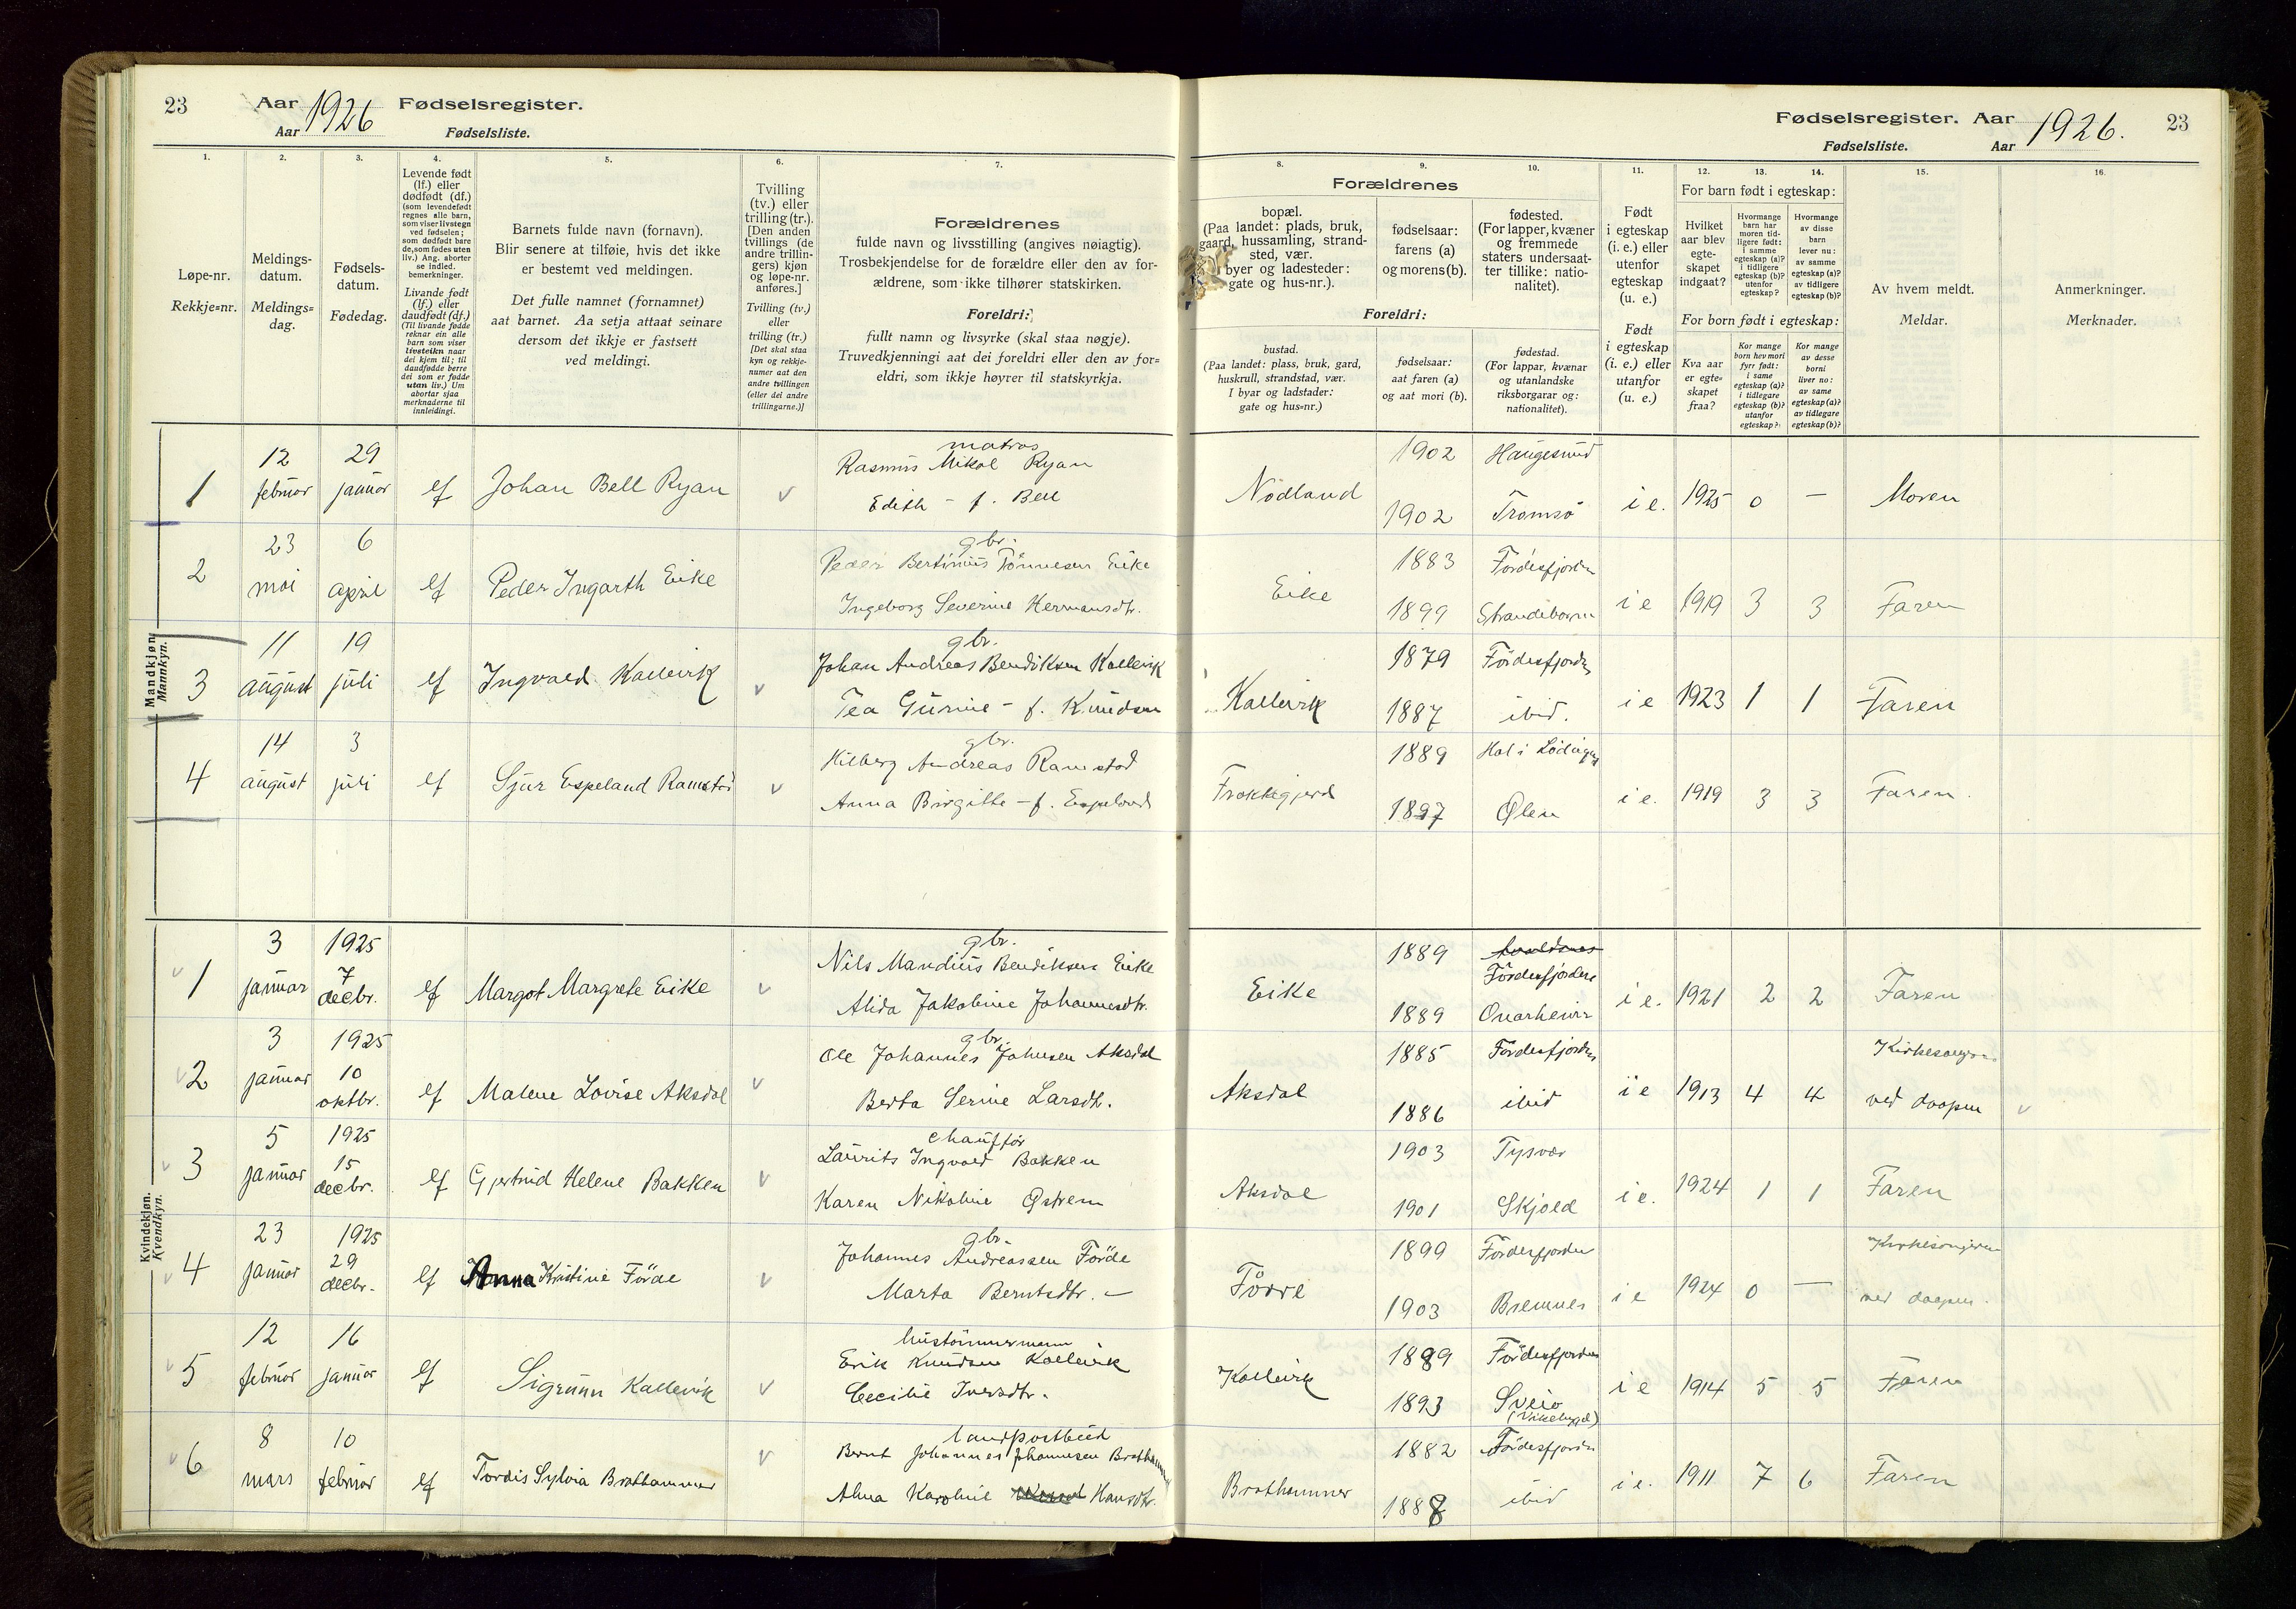 23 Aar 1926 Fødselsregister.
Aar Fødselsliste.
1.
Løpe-nr.
Rekkje=nr.
2.
Meldings-
datum.
Meldings=
dag.
3.
Fødsels-
datum.
Fødedag.
4.
Levende født
(lf.) eller
dødfødt (df.)
(som levendefødt
regnes alle barn,
som viser livstegn
ved fødselen;
som dødfødt bare
de, som fødes uten
liv.) Ang. aborter
se indled.
bemerkninger.
Livande født
(lf.) eller
daudfødt (df.)
(Til livande fødde
reknar ein alle
barn som viser
livsteikn naar
dei kjem til; til
daudfødde berre
dei som er fødde
utan liv.) Um
abortar sjaa
merknaderne til
innleidingi.
5.
Barnets fulde navn (fornavn).
Blir senere at tilføie, hvis det ikke
er bestemt ved meldingen.
Det fulle namnet (fornamnet)
aat barnet. Aa setja attaat seinare
dersom det ikkje er fastsett
ved meldingi.
6.
Tvilling
(tv.) eller
trilling (tr.).
[Den anden
tvillings (de
andre trillin-
gers) kjøn
og løpe-nr.
anføres.]
Tvilling (tv.)
eller
trilling (tr.)
[Det skal staa
kyn og rekkje-
numer aat den
andre tvillingen
(eller dei andre
trillingarne.)]
7.
Forældrenes
fulde navn og livsstilling (angives nøiagtig).
Trosbekjendelse for de forældre eller den av for-
ældrene, som ikke tilhører statskirken.
Foreldri:
fullt namn og livsyrke (skal staa nøgje).
Truvedkjenningi aat dei foreldri eller den av for=
eldri, som ikkje høyrer til statskyrkja.
Mandkjøn.
Mannkyn.
matros
1 12 februar 29 januar lf Johan Bell Ryan Rasmus Mikal Ryan
Edith - f. Bell
gbr.
2 23 mai 6 april lf Peder Ingarth Eike Peder Bertinius Tönnesen Eike
Ingeborg Severine Hermansdtr.
gbr.
3 11 august 19 juli lf Ingvald Kallevik Johan Andreas Bendiksen Kallevik
Tea Gurine - f. Knudsen
gbr.
4 14 august 3 juli lf Sjur Espeland Ramstad Hilberg Andreas Ramstad
Anna Birgitte - f. Espeland
Kvindekjøn.
Kvendkyn.
gbr.
1 3 januar 1925 7 decbr. lf Margot Margrete Eike Nils Mandius Bendiksen Eike
Alida Jakobine Johannesdtr.
gbr.
2 3 januar 1925 10 oktbr. lf Malene Lovise Aksdal Ole Johannes Johnsen Aksdal
Berta Serine Larsdtr.
chauffør
3 5 januar 1925 15 decbr. lf Gjertrud Helene Bakken Laurits Ingvald Bakken
Karen Nikoline Østrem
gbr.
4 23 januar 1925 29 decbr. lf Anna Kristine Förde Johannes Andreassen Förde
Marta Berntsdtr. -
hustömmermann
5 12 februar 16 januar lf Sigrunn Kallevik Erik Knudsen Kallevik
Cecilie Iversdtr.
landpostbud
6 8 mars 10 februar lf Tordis Sylvia Brathammer Bernt Johannes Johannesen Brathammer
Alma Karoline Hansdtr.
Fødselsregister. Aar 1926. 23
Fødselsliste. Aar
8.
Forældrenes
bopæl.
(Paa landet: plads, bruk,
gaard, hussamling, strand-
sted, vær.
I byer og ladesteder:
gate og hus-nr.).
Foreldri:
bustad.
(Paa landet: plass, bruk, gard,
huskrull, strandstad, vær.
I byar og ladstader:
gate og hus=nr.)
9.
fødselsaar:
farens (a)
og morens (b).
fødselsaar:
aat faren (a)
og aat mori (b).
10.
fødested.
(For lapper, kvæner
og fremmede
staters undersaat-
ter tillike: natio-
nalitet).
fødestad.
(For lappar, kvænar
og utanlandske
riksborgarar og:
nationalitet).
11.
Født
i egteskap
(i. e.) eller
utenfor
egteskap
(u. e.)
Født
i egteskap
(i. e.) eller
utanfor
(u. e.)
12. 13. 14.
For barn født i egteskap:
Hvilket
aar blev
egte-
skapet
indgaat?
Hvormange
barn har
moren tid-
ligere født:
i samme
egteskap (a)?
i tidligere
egteskap (b)?
utenfor
egteskap?
Hvormange
av disse
barn
lever nu:
av samme
egteskap (a)?
av tidligere
egteskap (b)?
For born født i egteskap:
Kva aar
er egte-
skapet
fraa?
Kor mange
born hev mori
fyrr født:
i same
egteskap (a)?
i tidlegare
egteskap (b)?
utanfor
egteskap?
Kor mange
av desse
borni
liver no:
av same
egteskap (a)?
av tidlegare
egteskap (b)?
15.
Av hvem meldt.
Meldar.
16.
Anmerkninger.
Merknader.
Nödland 1902 Haugesund i e. 1925 0 - Moren
1902 Tromsö
Eike 1883 Fördesfjorden i e 1919 3 3 Faren
1899
Kallevik 1879 Fördesfjorden i e 1923 1 1 Faren
1887 ibid.
Frakkagjerd 1889 Hol i Lödingen i e. 1919 3 3 Faren.
1897 Ølen
Eike 1889 Avaldsnes Fördesfjorden i e. 1921 2 2 Faren
1889 Ovarheim
Aksdal 1885 Fördesfjorden i e 1913 4 4 Kirkesangeren
1886 ibid ved daapen
Aksdal 1903 Tysvær i e. 1924 1 1 Faren
1901 Skjold
Förre 1899 Fördesfjorden i e 1924 0 - Kirkesangeren
1903 Bremnes ved daapen.
Kallevik 1889 Fördesfjorden i e 1914 5 5 Faren
1893 Sveio
(Vikebygd)
Brathammer 1882 Fördesfjorden i e. 1911 7 6 Faren
1888 ibid